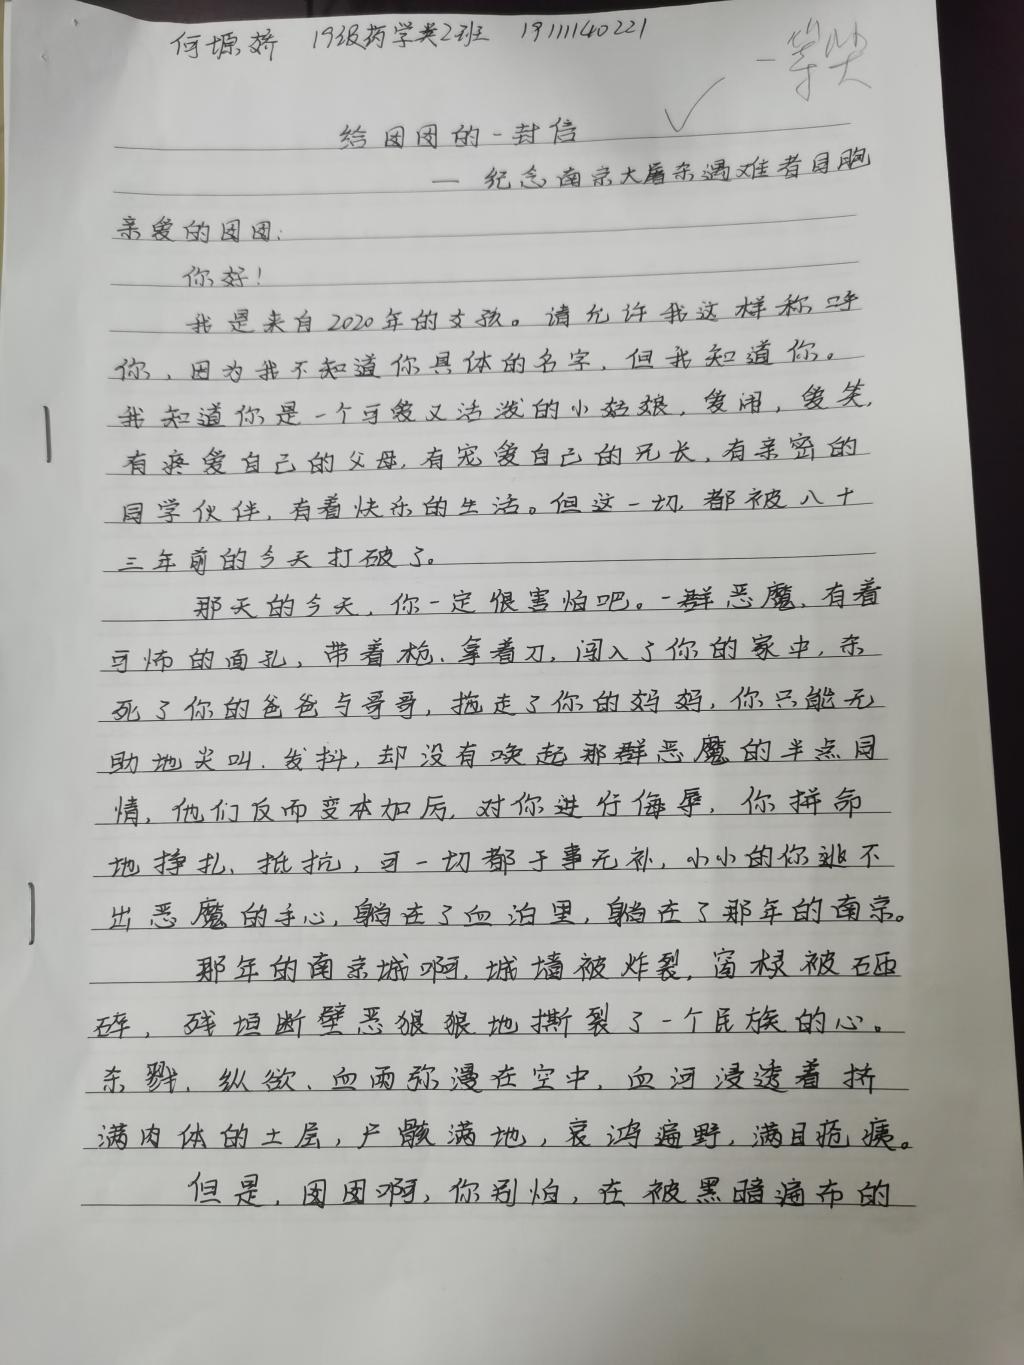 何塬娇 19级药学类2班 19111140221
一等奖
给团团的一封信
— 纪念南京大屠杀遇难者同胞
亲爱的团团:
你好!
我是来自2020年的女孩。请允许我这样称呼
你,因为我不知道你具体的名字,但我知道你。
我知道你是一个可爱又活泼的小姑娘,爱闹,爱笑,
有疼爱自己的父母,有宠爱自己的兄长,有亲密的
同学伙伴,有着快乐的生活。但这一切,都被八十
三年前的今天打破了。
那天的今天,你一定很害怕吧。一群恶魔,有着
可怖的面孔,带着枪、拿着刀,闯入了你的家中,杀
死了你的爸爸与哥哥,拖走了你的妈妈,你只能无
助地尖叫、发抖,却没有唤起那群恶魔的半点同
情,他们反而变本加厉,对你进行侮辱,你拼命
地挣扎、抵抗,可一切都于事无补,小小的你逃不
出恶魔的手心,躺在了血泊里,躺在了那年的南京。
那年的南京城啊,城墙被炸裂,窗棂被砸
碎,残垣断壁恶狠狠地撕裂了一个民族的心。
杀戮、纵欲、血雨弥漫在空中,血河浸透着挤
满肉体的土层,尸骸满地,哀鸿遍野,满目疮痍。
但是,团团啊,你别怕,在被黑暗遍布的